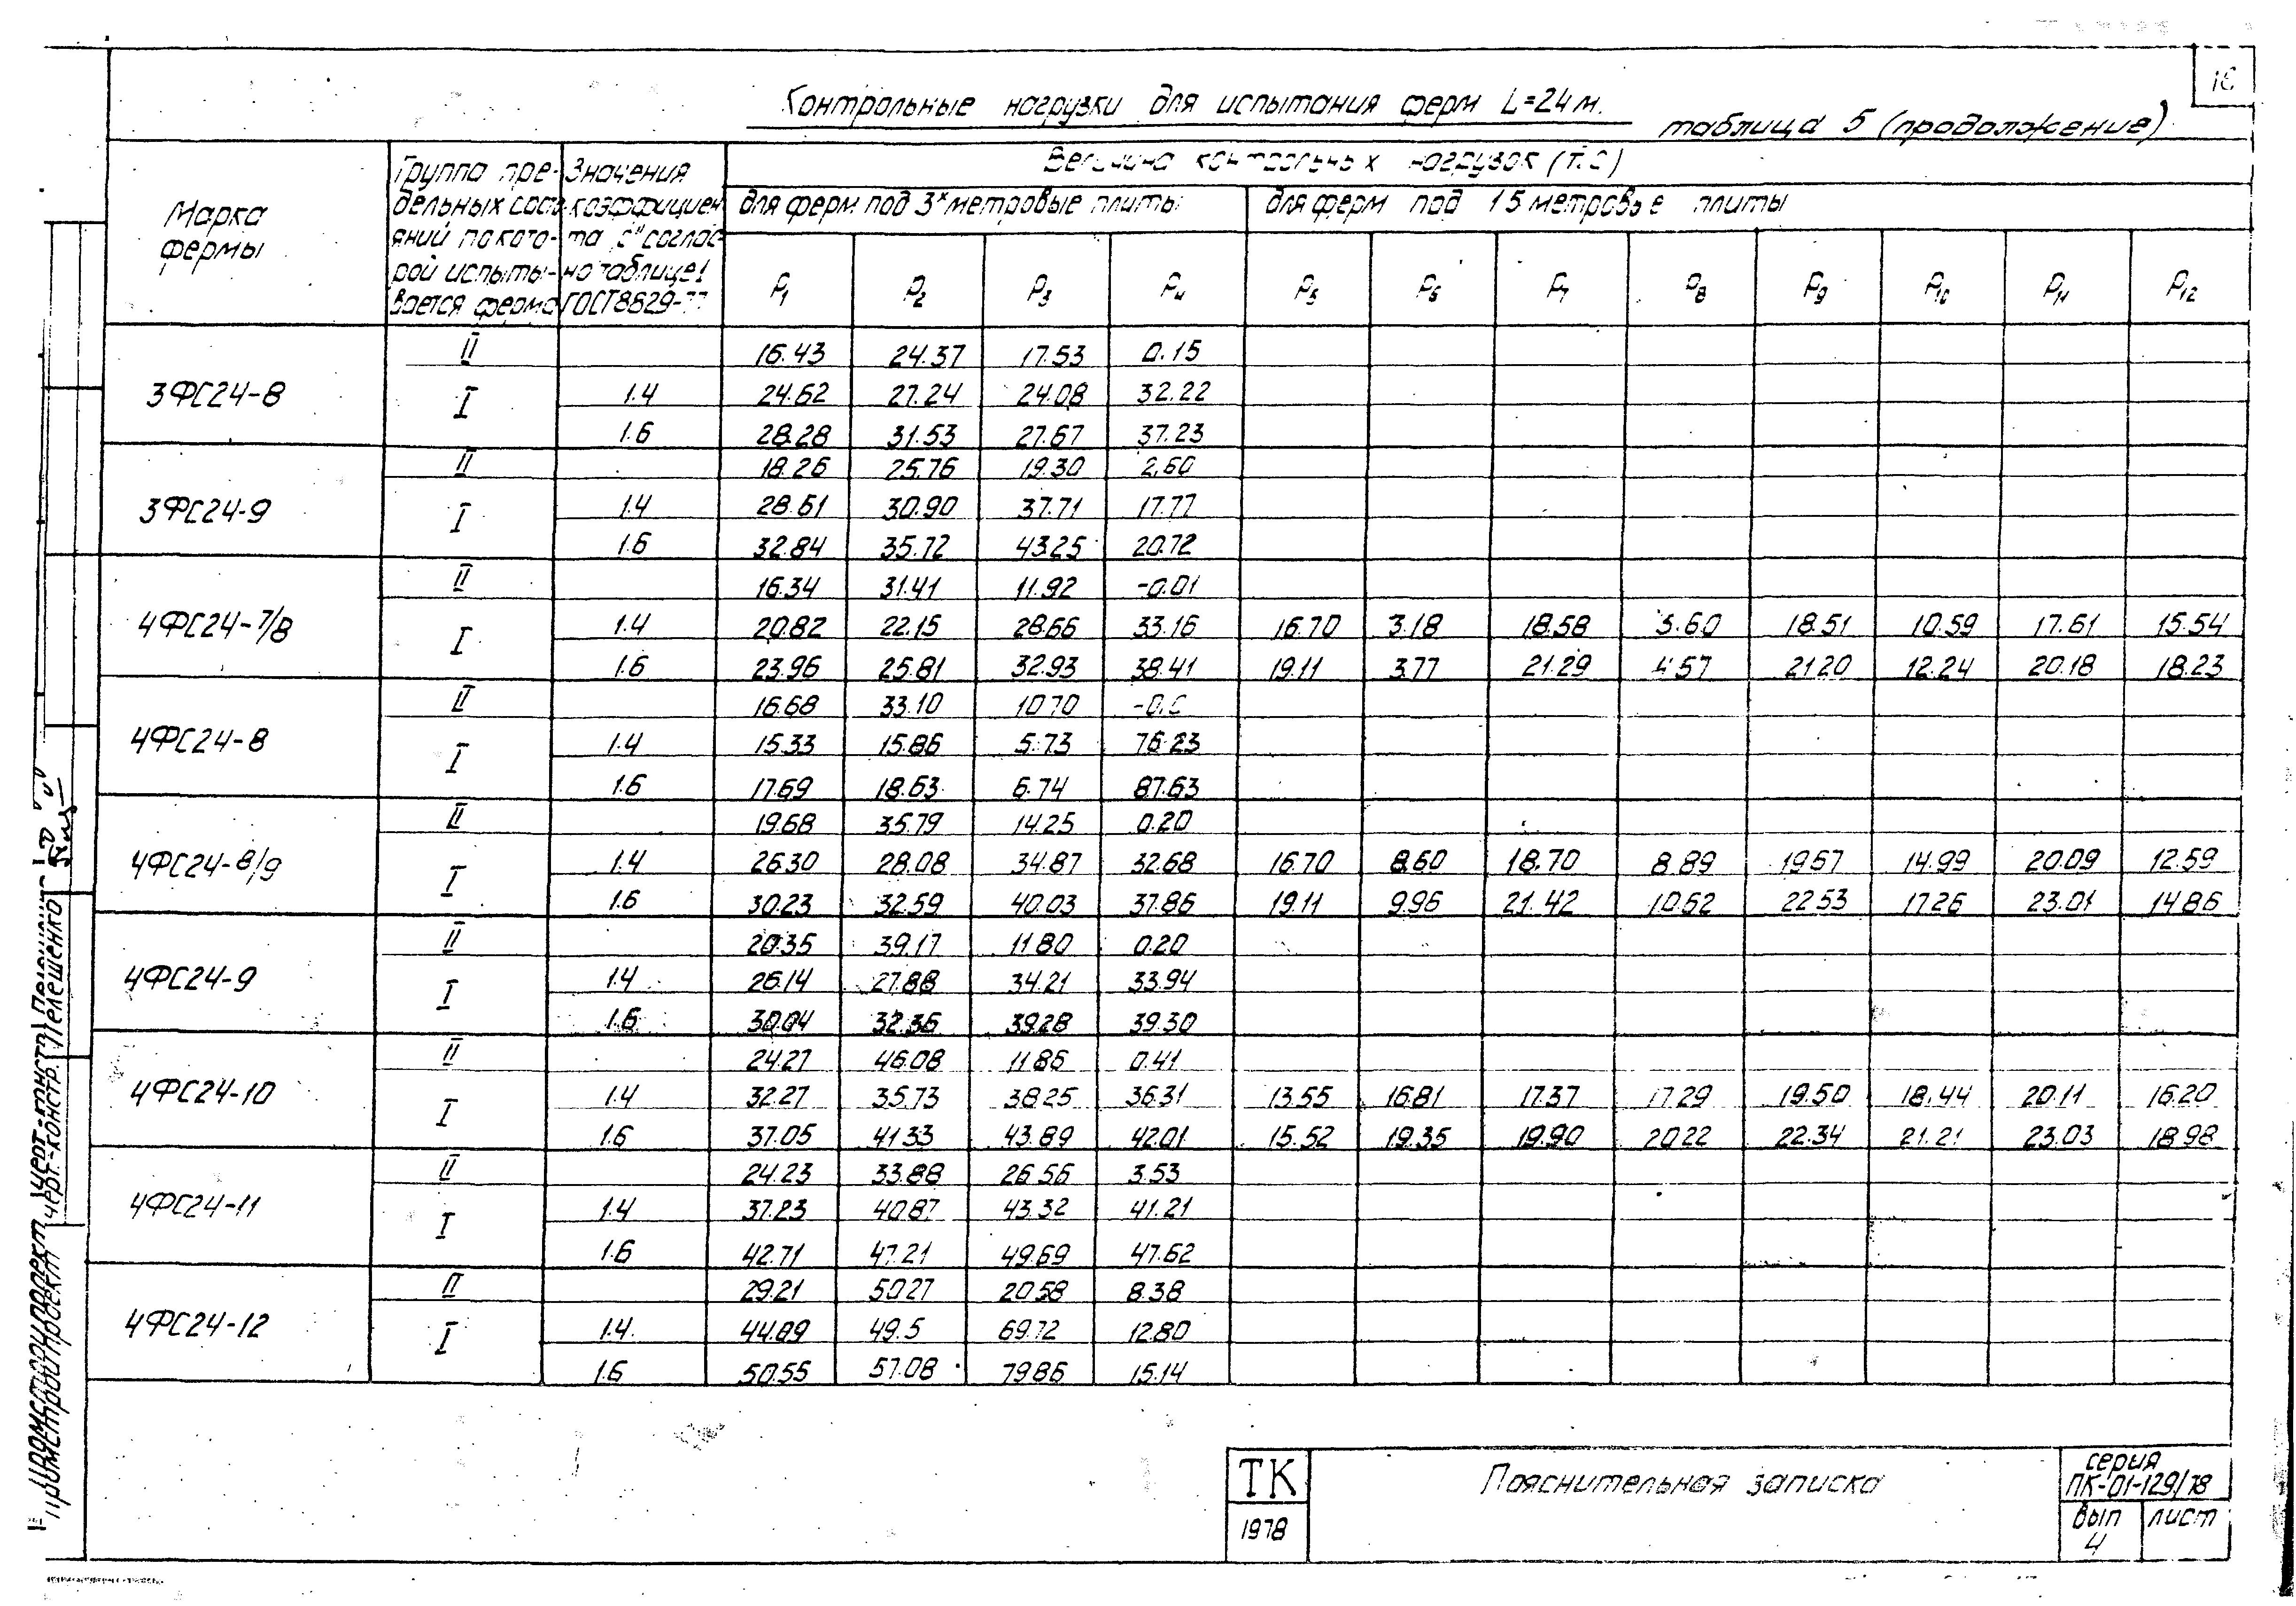 Контрольные нагрузки для испытания ферм L=24м.
таблица 5 (продолжение)
Марка фермы
Группа предельных состояний по которой испытывается ферма
Значения коэффициента "С" согласно таблице 1 ГОСТ 8829-77
Величина контрольных нагрузок (т.с)
для ферм под 3х метровые плиты
для ферм под 1.5 метровые плиты
P1 P2 P3 P4 P5 P6 P7 P8 P9 P10 P11 P12
3ФС24-8
II 16.43 24.37 17.53 0.15
I 1.4 24.62 27.24 24.08 32.22
1.6 28.28 31.53 27.67 37.23
3ФС24-9
II 18.26 25.76 19.30 2.60
I 1.4 28.61 30.90 37.71 17.77
1.6 32.84 35.72 43.25 20.72
4ФС24-7/8
II 16.34 31.41 11.92 -0.01
I 1.4 20.82 22.15 28.66 33.16 16.70 3.18 18.58 3.60 18.51 10.59 17.61 15.54
1.6 23.96 25.81 32.93 38.41 19.11 3.77 21.29 4.57 21.20 12.24 20.18 18.23
4ФС24-8
II 16.68 33.10 10.70
I 1.4 15.33 15.86 5.73 76.23
1.6 17.69 18.63 6.74 87.63
4ФС24-8/9
II 19.68 35.79 14.25 0.20
I 1.4 26.30 28.08 34.87 32.68 16.70 8.60 18.70 8.89 19.67 14.99 20.09 12.59
1.6 30.23 32.59 40.03 37.86 19.11 9.96 21.42 10.62 22.53 17.26 23.01 14.86
4ФС24-9
II 20.35 39.17 11.80 0.20
I 1.4 26.14 27.88 34.21 33.94
1.6 30.04 32.36 39.28 39.30
4ФС24-10
II 24.27 46.08 11.86 0.41
I 1.4 32.27 35.73 38.25 36.31 13.55 16.81 17.37 17.29 19.50 18.44 20.11 16.20
1.6 37.05 41.33 43.89 42.01 15.52 19.35 19.90 20.22 22.34 21.21 23.03 18.98
4ФС24-11
II 24.23 33.88 26.56 3.53
I 1.4 37.23 40.87 43.32 41.21
1.6 42.71 47.21 49.69 47.62
4ФС24-12
II 29.21 50.27 20.58 8.38
I 1.4 44.09 49.5 69.72 12.80
1.6 50.55 57.08 79.86 15.14
черт.-констр. Пелешенко
Промстройпроект
ТК
1978
Пояснительная записка
серия
ПК-01-129/78
вып
4
лист